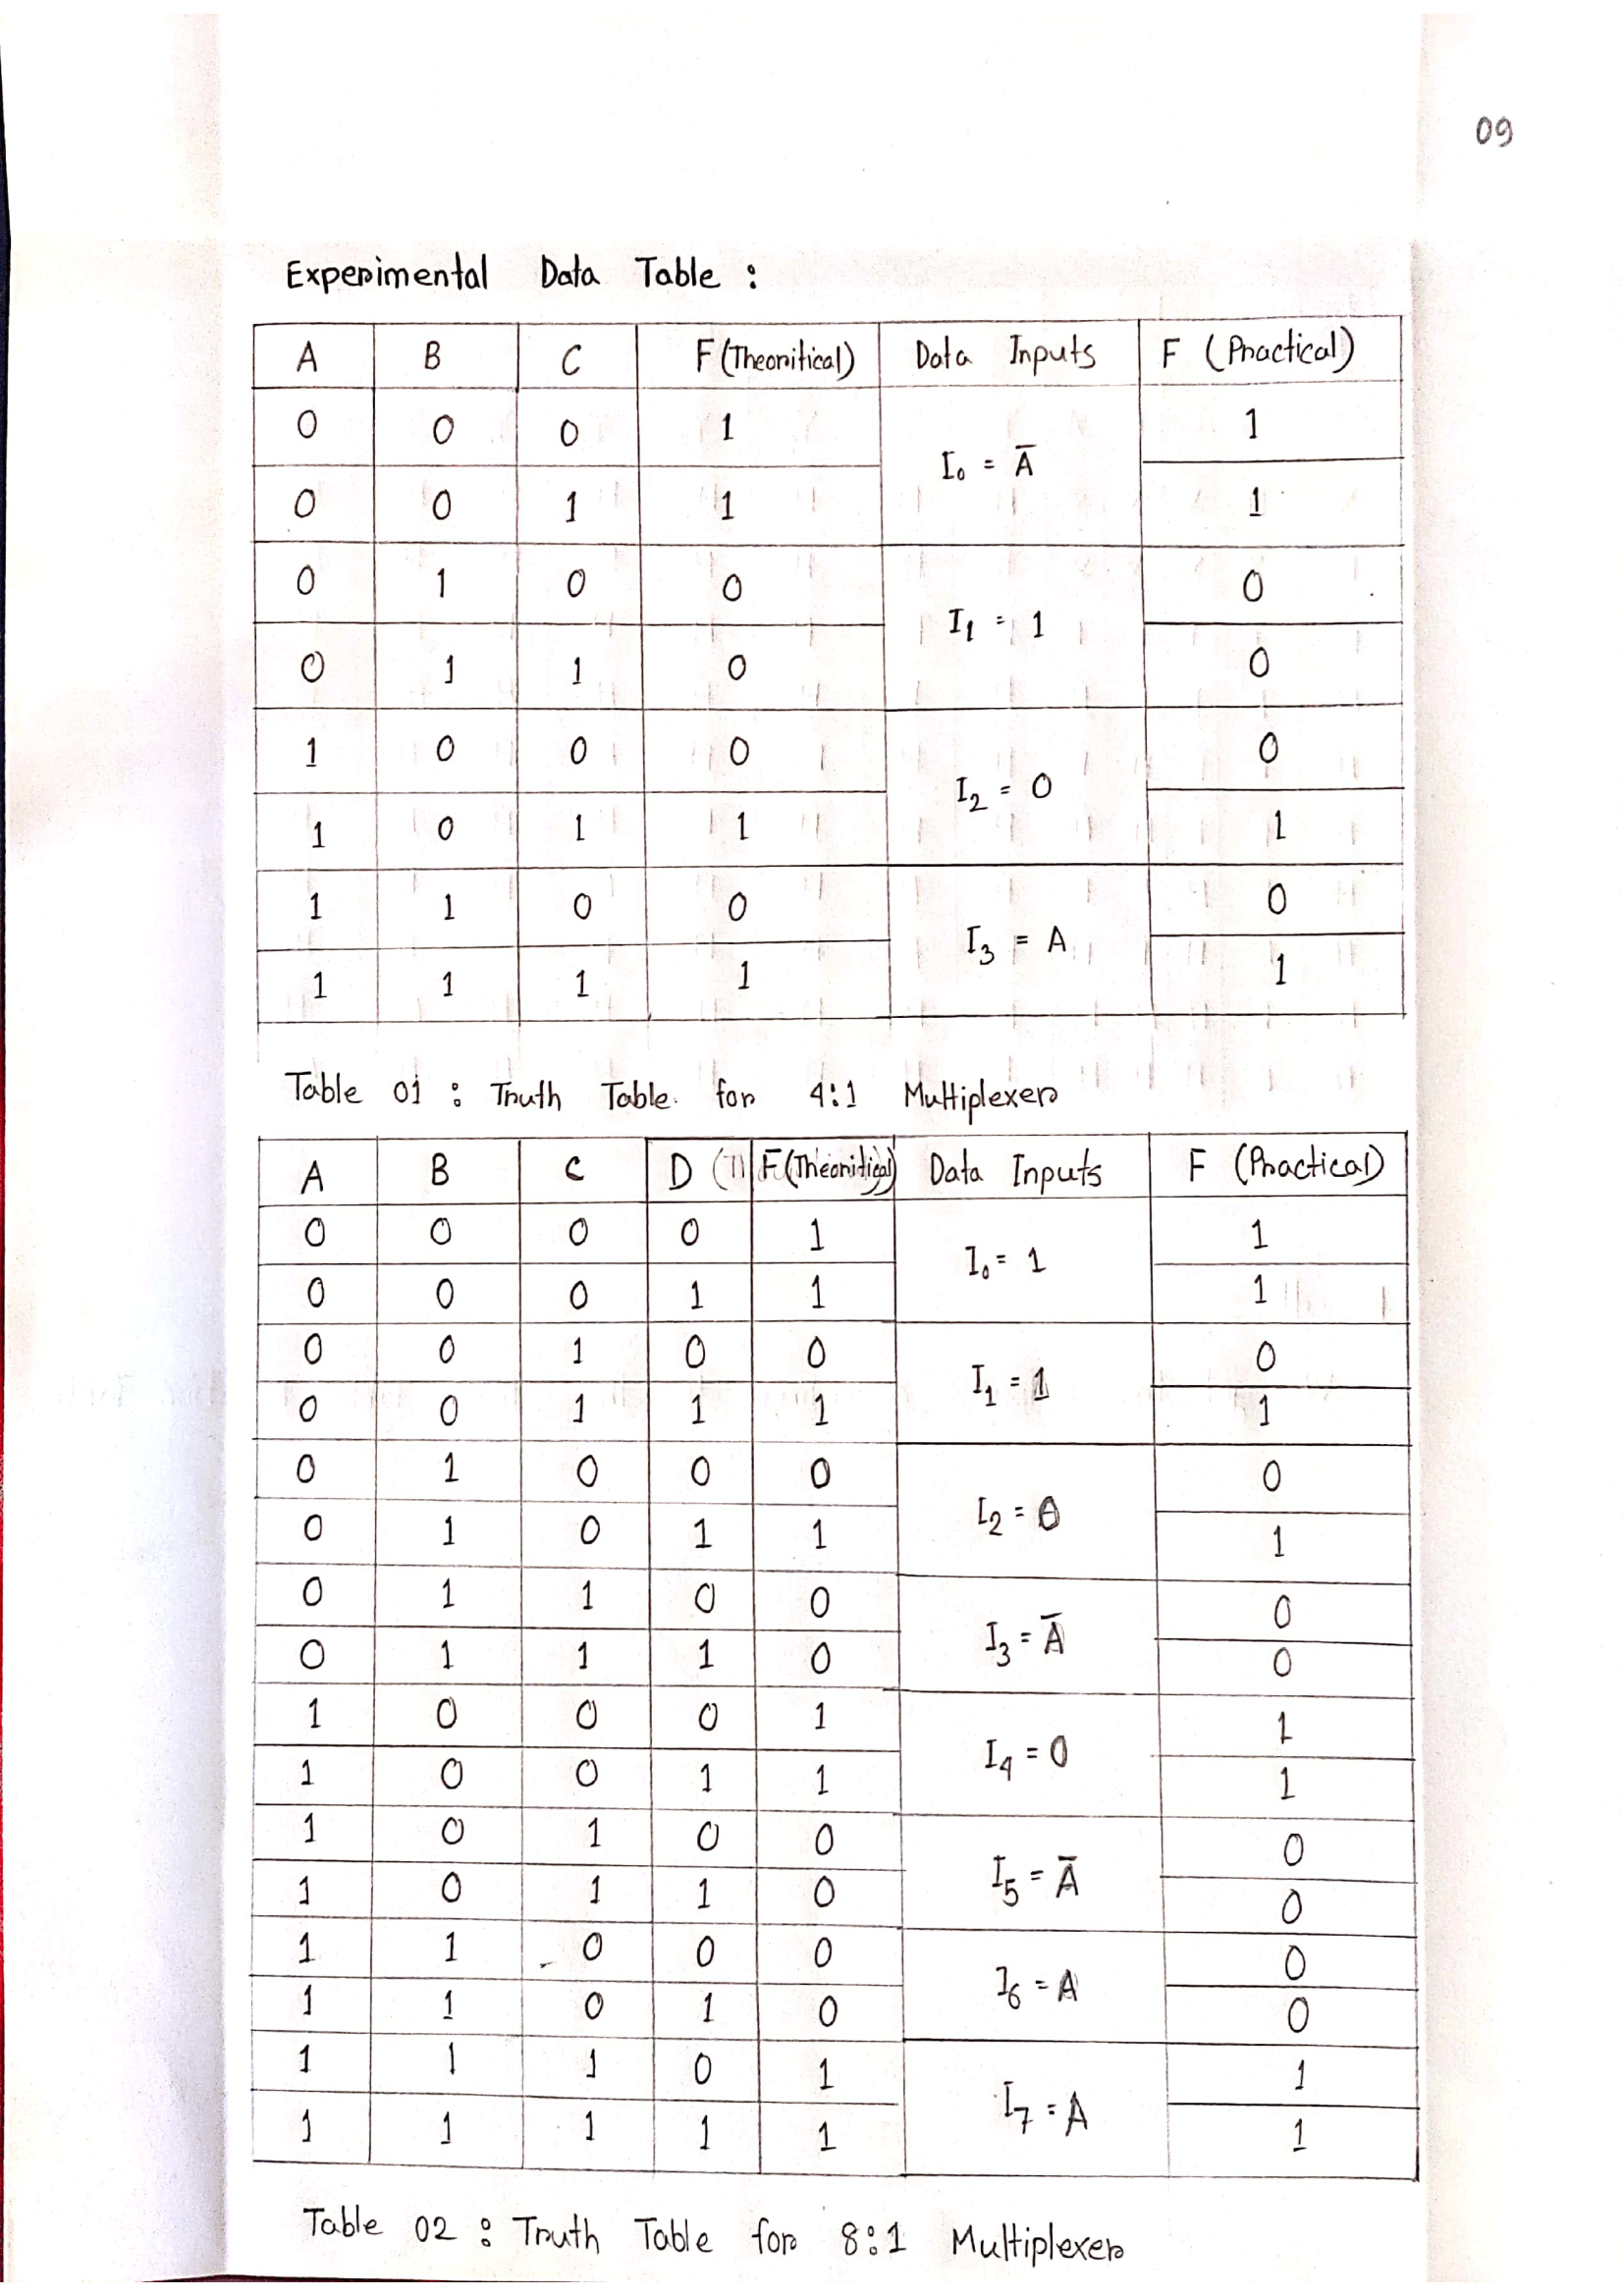 09
Experimental Data Table :
A B C F (Theoritical) Data Inputs F (Practical)
0 0 0 1 I₀ = A̅ 1
0 0 1 1 1
0 1 0 0 I₁ = 1 0
0 1 1 0 0
1 0 0 0 I₂ = 0 0
1 0 1 1 1
1 1 0 0 I₃ = A 0
1 1 1 1 1
Table 01 : Truth Table for 4:1 Multiplexer
A B C D F (Theoritical) Data Inputs F (Practical)
0 0 0 0 1 I₀ = 1 1
0 0 0 1 1 1
0 0 1 0 0 I₁ = 1 0
0 0 1 1 1 1
0 1 0 0 0 I₂ = 0 0
0 1 0 1 1 1
0 1 1 0 0 I₃ = A̅ 0
0 1 1 1 0 0
1 0 0 0 1 I₄ = 0 1
1 0 0 1 1 1
1 0 1 0 0 I₅ = A̅ 0
1 0 1 1 0 0
1 1 0 0 0 I₆ = A 0
1 1 0 1 0 0
1 1 1 0 1 I₇ = A 1
1 1 1 1 1 1
Table 02 : Truth Table for 8:1 Multiplexer